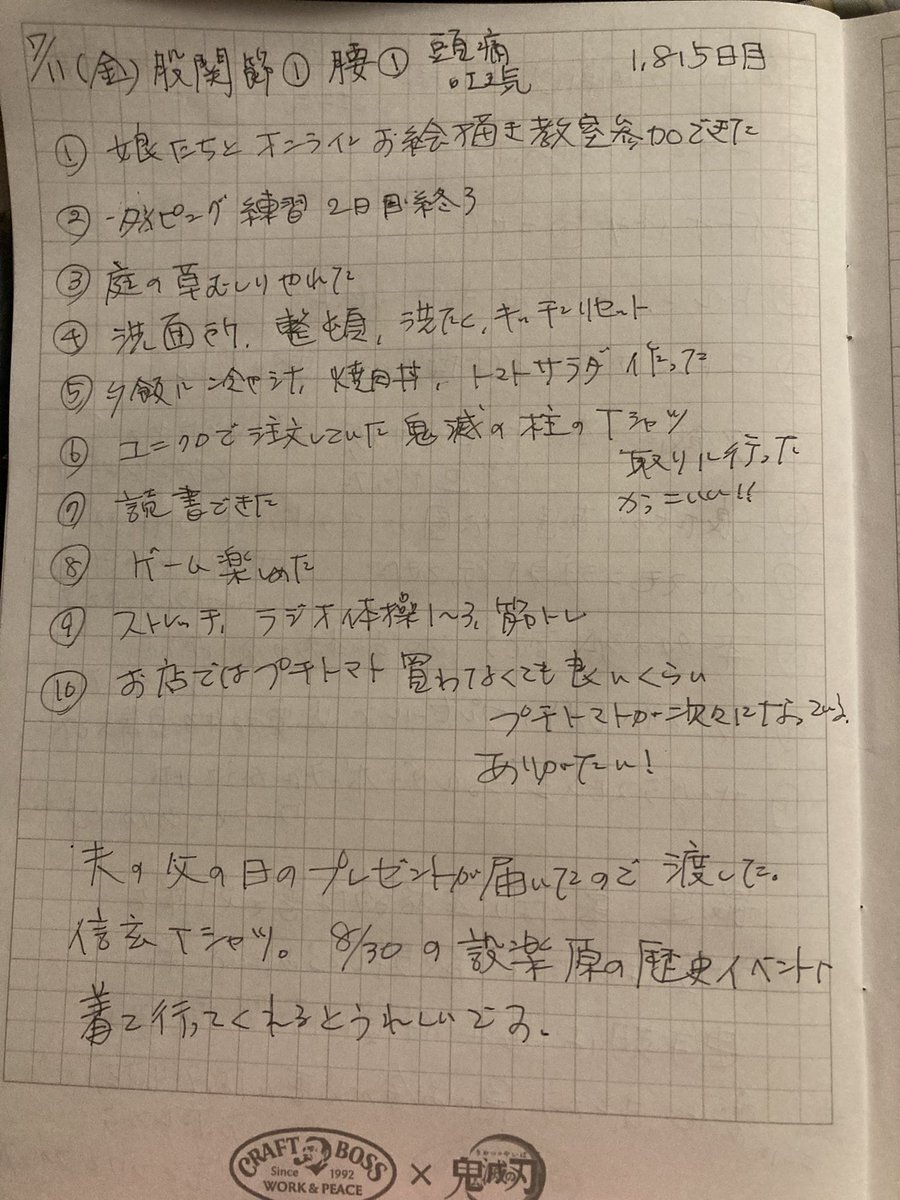 7/11(金) 股関節① 腰① 頭痛 吐気 1,815日目
① 娘たちとオンラインお絵描き教室参加できた
② タイピング練習 2日目終了
③ 庭の草むしりやれた
④ 洗面所、整頓、洗たく、キッチンリセット
⑤ 夕飯に冷や汁、焼肉丼、トマトサラダ作った
⑥ ユニクロで注文していた鬼滅の柱のTシャツ
取りに行った
かっこいい!!
⑦ 読書できた
⑧ ゲーム楽しめた
⑨ ストレッチ、ラジオ体操1~3、筋トレ
⑩ お店ではプチトマト買わなくても良いくらい
プチトマトが次々になっている。
ありがたい!
夫の父の日のプレゼントが届いたので渡した。
信玄Tシャツ。8/30の設楽原の歴史イベントに
着て行ってくれるとうれしいです。
CRAFT BOSS
Since 1992
WORK & PEACE
×
きめつのやいば
鬼滅の刃